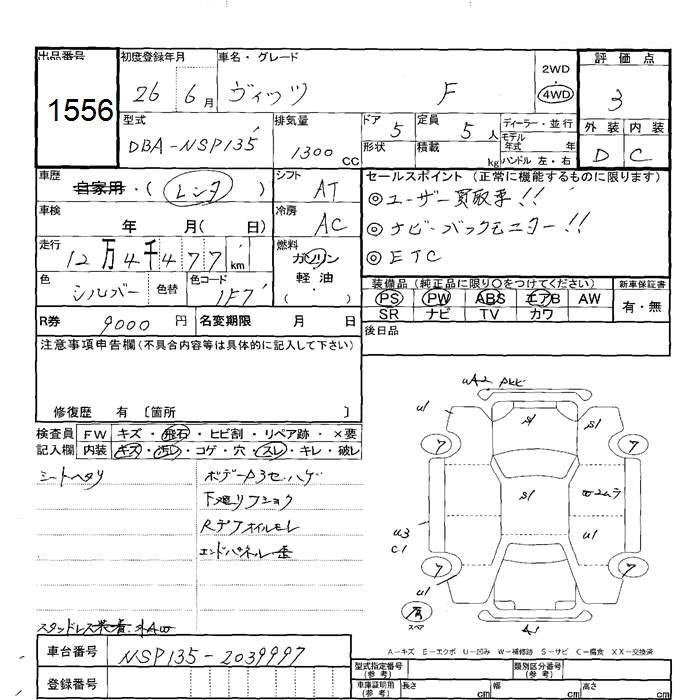 出品番号
1556
初度登録年月
26 6月
車名・グレード
ヴィッツ F
2WD
4WD
評価点
3
外装 内装
D C
型式
DBA-NSP135
排気量
1300 CC
ドア 5
定員 5人
形状
積載 kg
ディーラー・並行
モデル年式 年
ハンドル 左・右
車歴
自家用・(レンタ)
シフト
AT
車検
年 月( 日)
冷房
AC
走行
12万4千477 km
燃料
ガソリン
軽油
( )
色
シルバー
色替
色コード
1F7
セールスポイント (正常に機能するものに限ります)
◎ユーザー買取車!!
◎ナビ・バックモニター!!
◎ETC
装備品(純正品に限り○をつけてください)
新車保証書
PS PW ABS エアB AW
SR ナビ TV カワ
有・無
後日品
R券 9000円
名変期限 月 日
注意事項申告欄(不具合内容等は具体的に記入して下さい)
修復歴 有 〔箇所 〕
検査員記入欄
FW キズ・飛石・ヒビ割・リペア跡・×要
内装 キズ・汚レ・コゲ・穴・スレ・キレ・破レ
シートヘタリ
ボデーA3セハゲ
下廻リフショク
Rデフオイルモレ
エンドパネル歪
スタッドレス
車台番号 NSP135-2039997
登録番号
uA2
u1
S1
S1
7
7
S1
u3
C1
u1
7
7
u1
スペア
A1
A-キズ E-エクボ U-凹み W-補修跡 S-サビ C-腐食 XX-交換済
型式指定番号(参考)
類別区分番号(参考)
車庫証明用(参考)
長さ cm
幅 cm
高さ cm